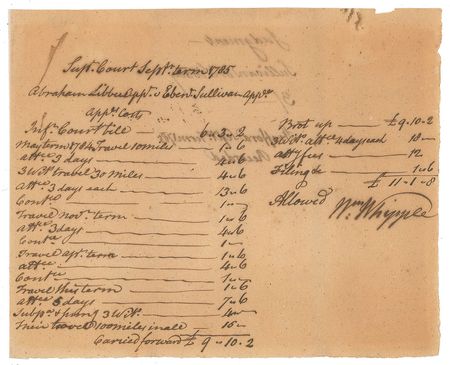 Supr. Court Septr. term 1785
Abraham Libbee appt. v Ebenr. Sullivan appee
Appts. Costs
Inf. Court bill 6 - 3 - 2
May term 1784 Travel 10 miles 1 - 6
attce. 3 days 4 - 6
3 Wt. travel 30 miles 4 - 6
attce. 3 days each 13 - 6
Contce. 1 -
Travel Novr. term 1 - 6
attce. 3 days 4 - 6
Contce 1 -
Travel apr. term 1 - 6
attce. 4 - 6
Contce 1 -
Travel this term 1 - 6
attce 5 days 7 - 6
Subpa. & 3 Wt. 4 -
Their travel 100 miles in all 16 -
Carried forward £ 9 - 10 - 2
Brot up £9 - 10 - 2
3 Wt. attce. 4 days each 18 -
atty fees 12
Filing &c 1 - 6
£ 11 - 1 - 8
Allowed
Wm. Whipple